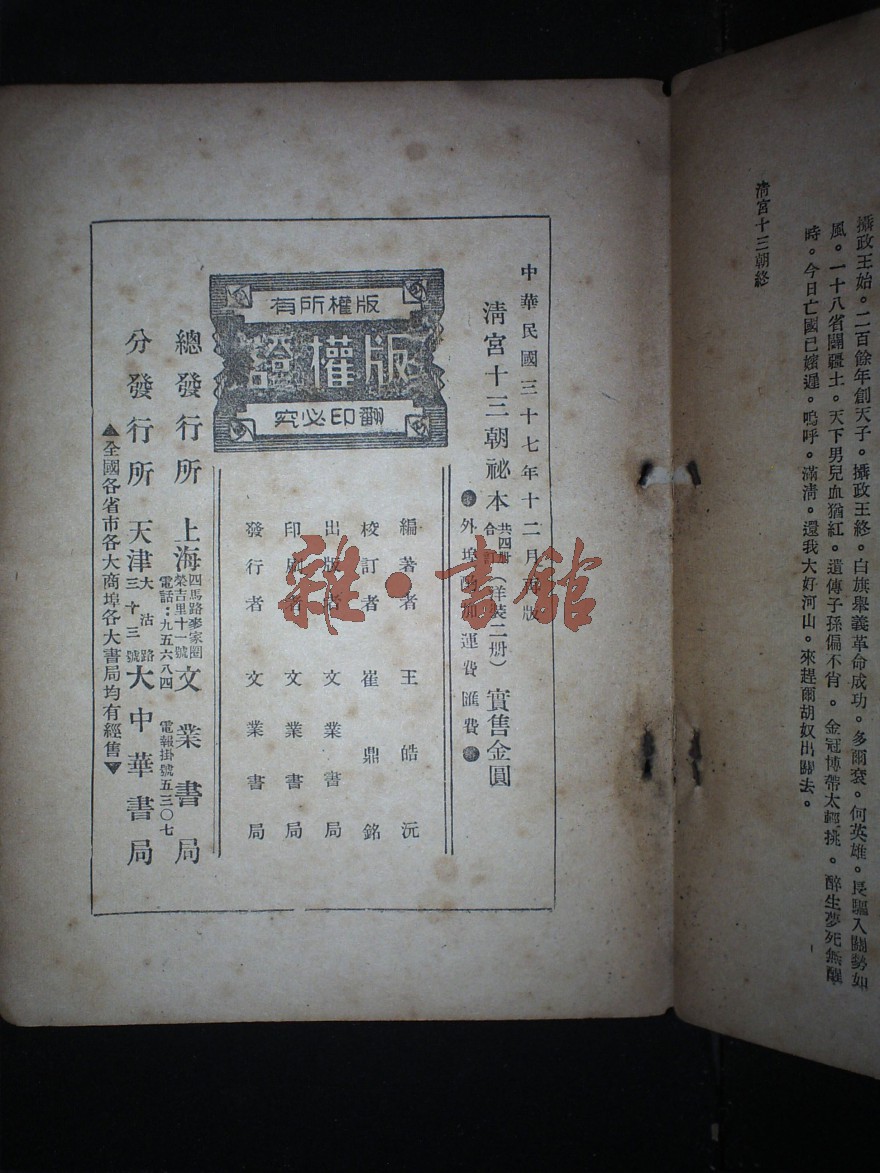 攝政王始。二百餘年創天子。攝政王終。白旗舉義革命成功。多爾袞。何英雄。長驅入關勢如
風。一十八省闢疆土。天下男兒血猶紅。遺傳子孫偏不肖。金冠博帶太輕挑。醉生夢死無醒
時。今日亡國已嫌遲。嗚呼。滿淸。還我大好河山。來趕爾胡奴出關去。
淸宮十三朝終
中華民國三十七年十二月再版
淸宮十三朝祕本 共四册合訂(洋裝二册)實售金圓
外埠酌加運費匯費
版權所有
版權證
翻印必究
編著者 王皓沅
校訂者 崔鼎銘
出版者 文業書局
印刷者 文業書局
發行者 文業書局
總發行所 上海 四馬路麥家圈榮吉里十一號 電話:九五六八四 電報掛號五三〇七 文業書局
分發行所 天津 大沽路三十三號 大中華書局
▲全國各省市各大商埠各大書局均有經售▼
雜·書館